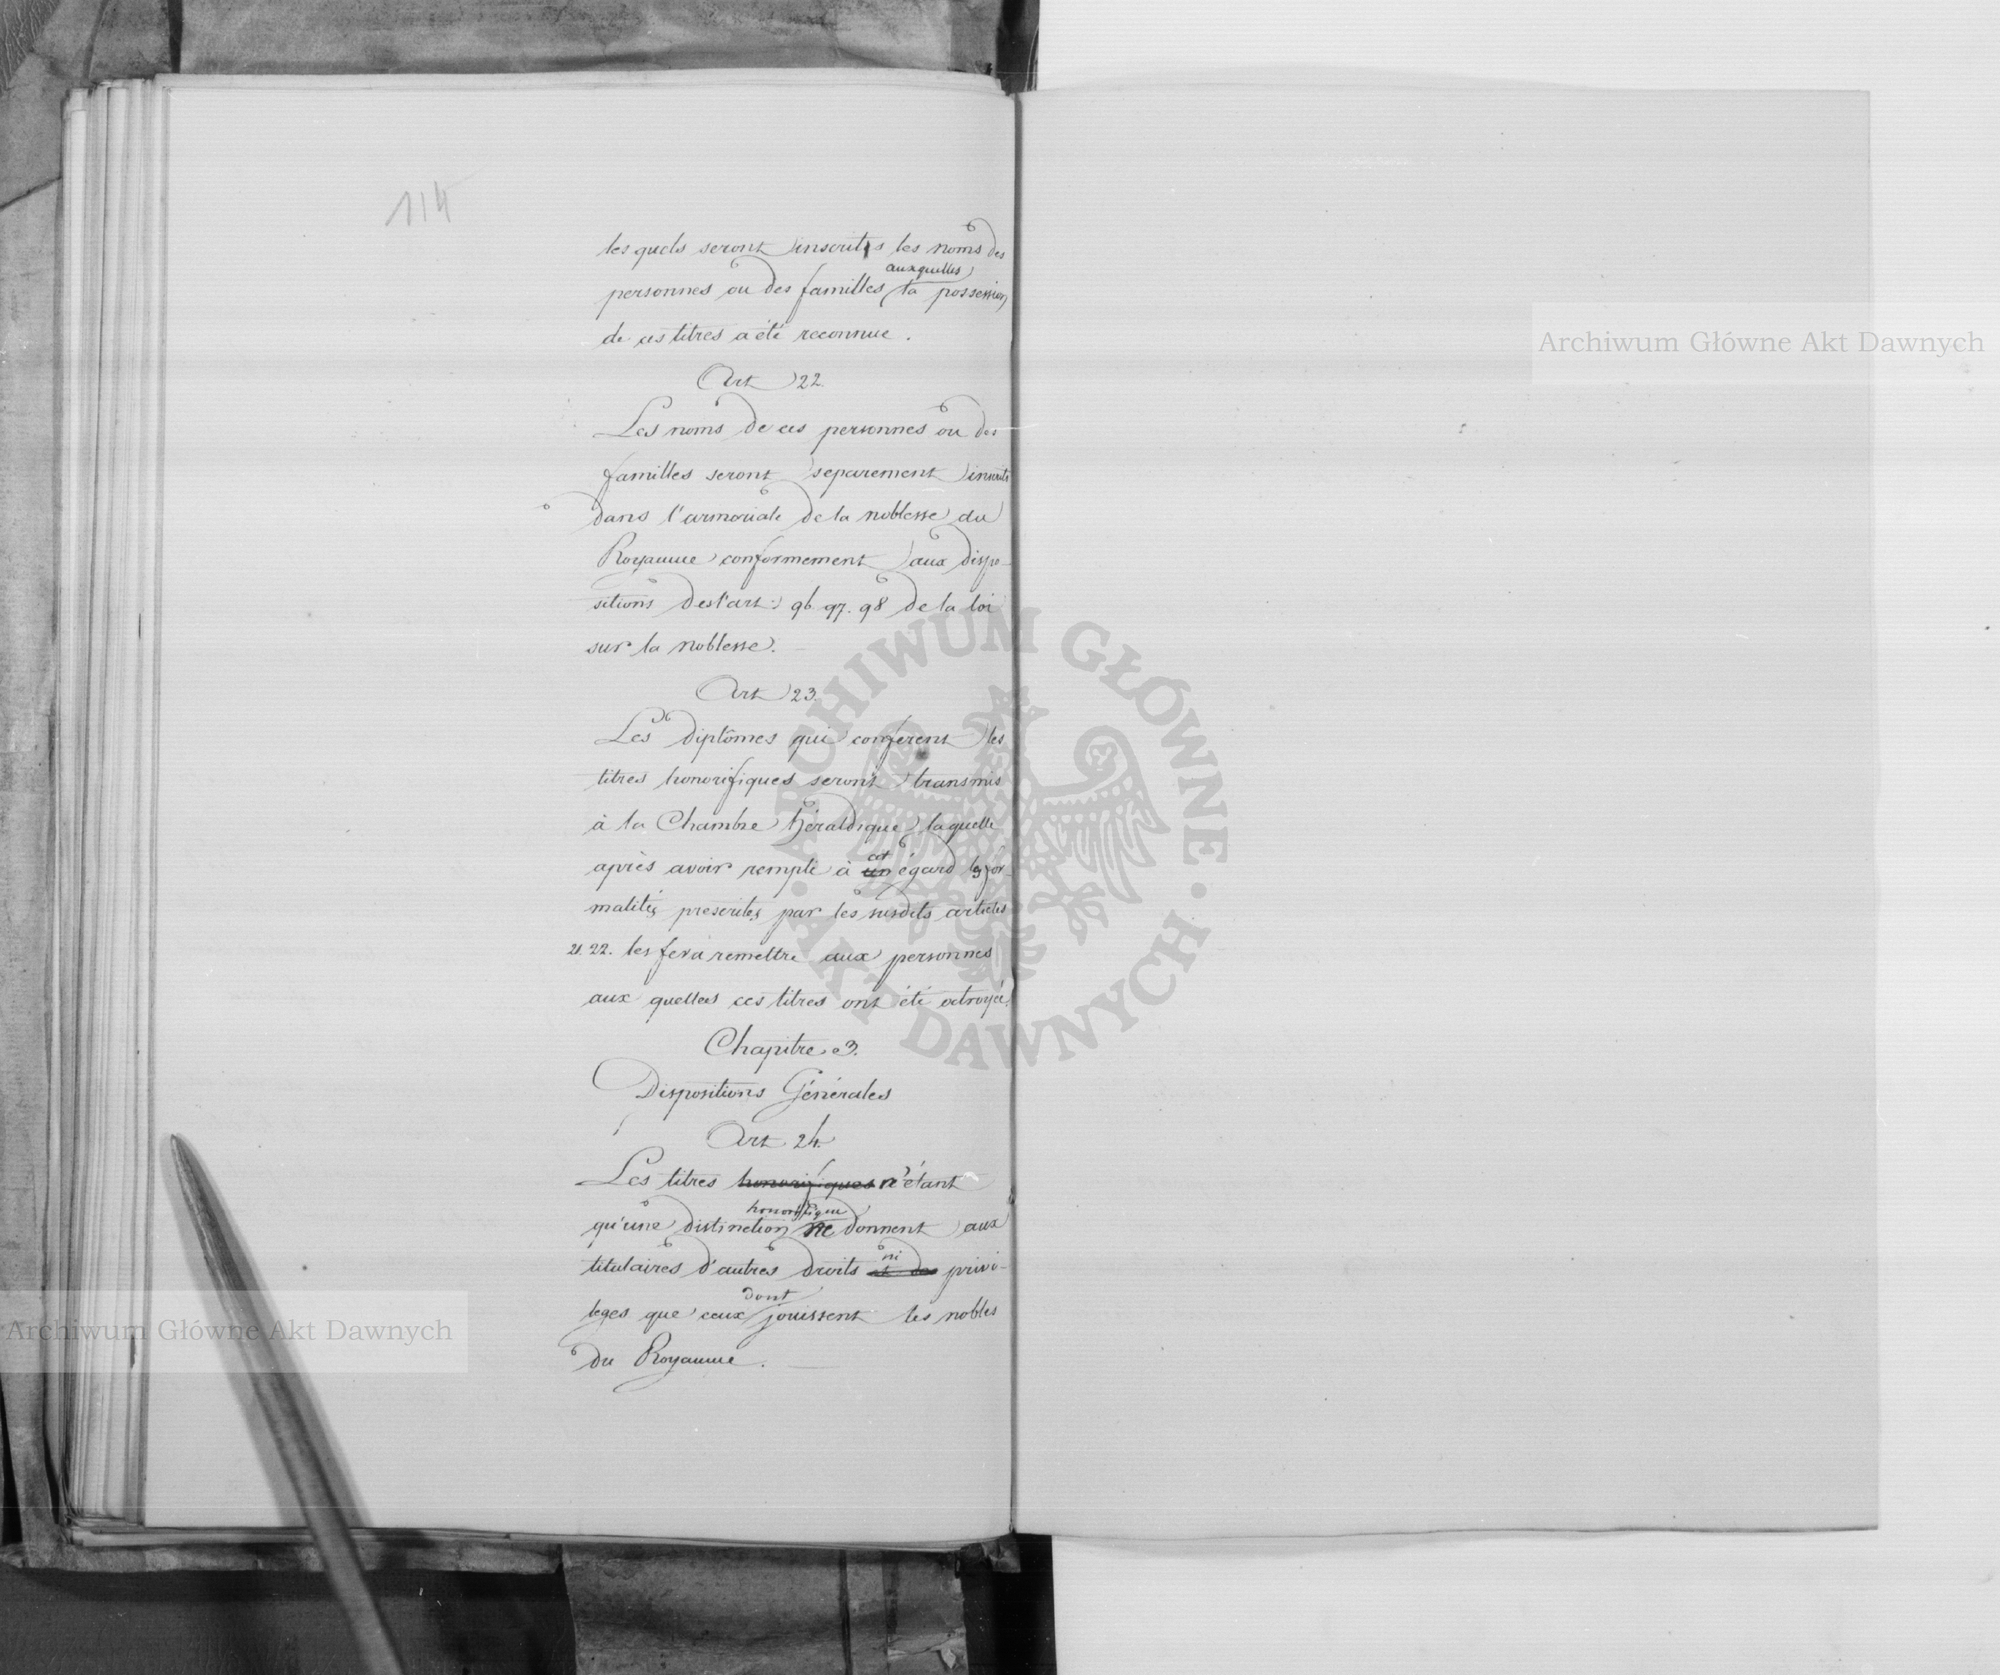 114
les quels seront inscrits les noms des
auxquelles
personnes ou des familles la possession
de ces titres a été reconnue.
Art 22.
Les noms de ces personnes ou des
familles seront separement inscrits
dans l'armoriale de la noblesse du
Royaume conformement aux dispo-
sitions des l'art: 96. 97. 98 de la loi
sur la noblesse.
Art 23.
Les diplômes qui conférent les
titres honorifiques seront transmis
à la Chambre Héraldique laquelle
cet
après avoir rempli à un égard les for-
malités prescrites par les susdits articles
21. 22. les fera remettre aux personnes
aux quelles ces titres ont été octroyés.
Chapitre 3.
Dispositions Générales
Art 24.
Les titres honorifiques n'étant
honorifique
qu'une distinction ne donnent aux
ni
titulaires d'autres droits et des privi-
dont
leges que ceux jouissent les nobles
du Royaume.
Archiwum Główne Akt Dawnych
Archiwum Główne Akt Dawnych
ARCHIWUM GŁÓWNE · AKT DAWNYCH ·